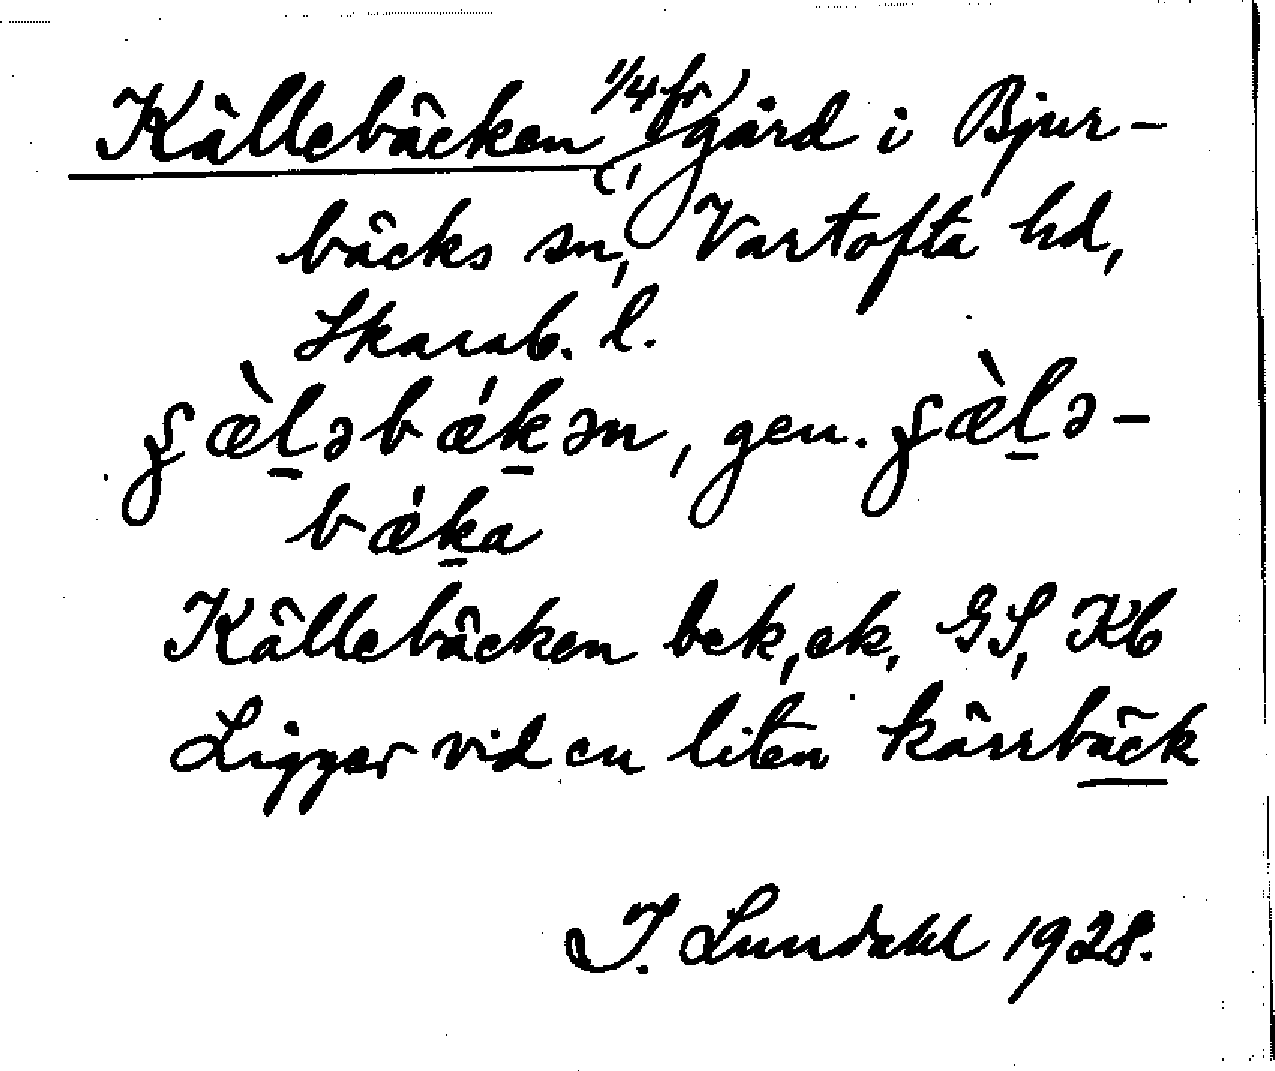 Källebäcken, (1/4 fr) gård i Bjur-
bäcks sn, Vartofta hd,
Skarab. l.
ʃæ̀l̠əbǽk̠ən, gen. ʃæ̀l̠ə-
bǽk̠a
Källebäcken bek, ek, GS, Kb
Ligger vid en liten kärrbäck
I. Lundahl 1928.